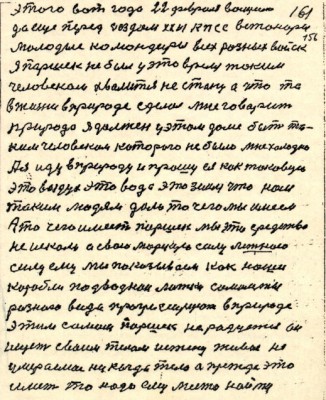 этого вот года 22 февраля 161
да еще перед сездом XXVI КПСС 156
молодые командиры всех разных войск
я паршек не был у это время таким
человеком хвалится не стану а что та
в жизни в природе сделал мне говарит
природа я должен у этом доме быть та-
ким человеком которого не было мне холодно
Ая иду в природу и прошу ея как таковую
это воздух это вода это земля что нам
таким людям дало то чего мы имеем
А то чего имеет паршек мы это средство
не искали а свою морскую силу
силу ему мы показываем как наши
корабли подводная лодка самолеты
разного вида в природе
этим самим паршек не радуется он
ищет своим телом истину живая не
умираемая никогда тело а прежде это
иметь то надо ему место найти